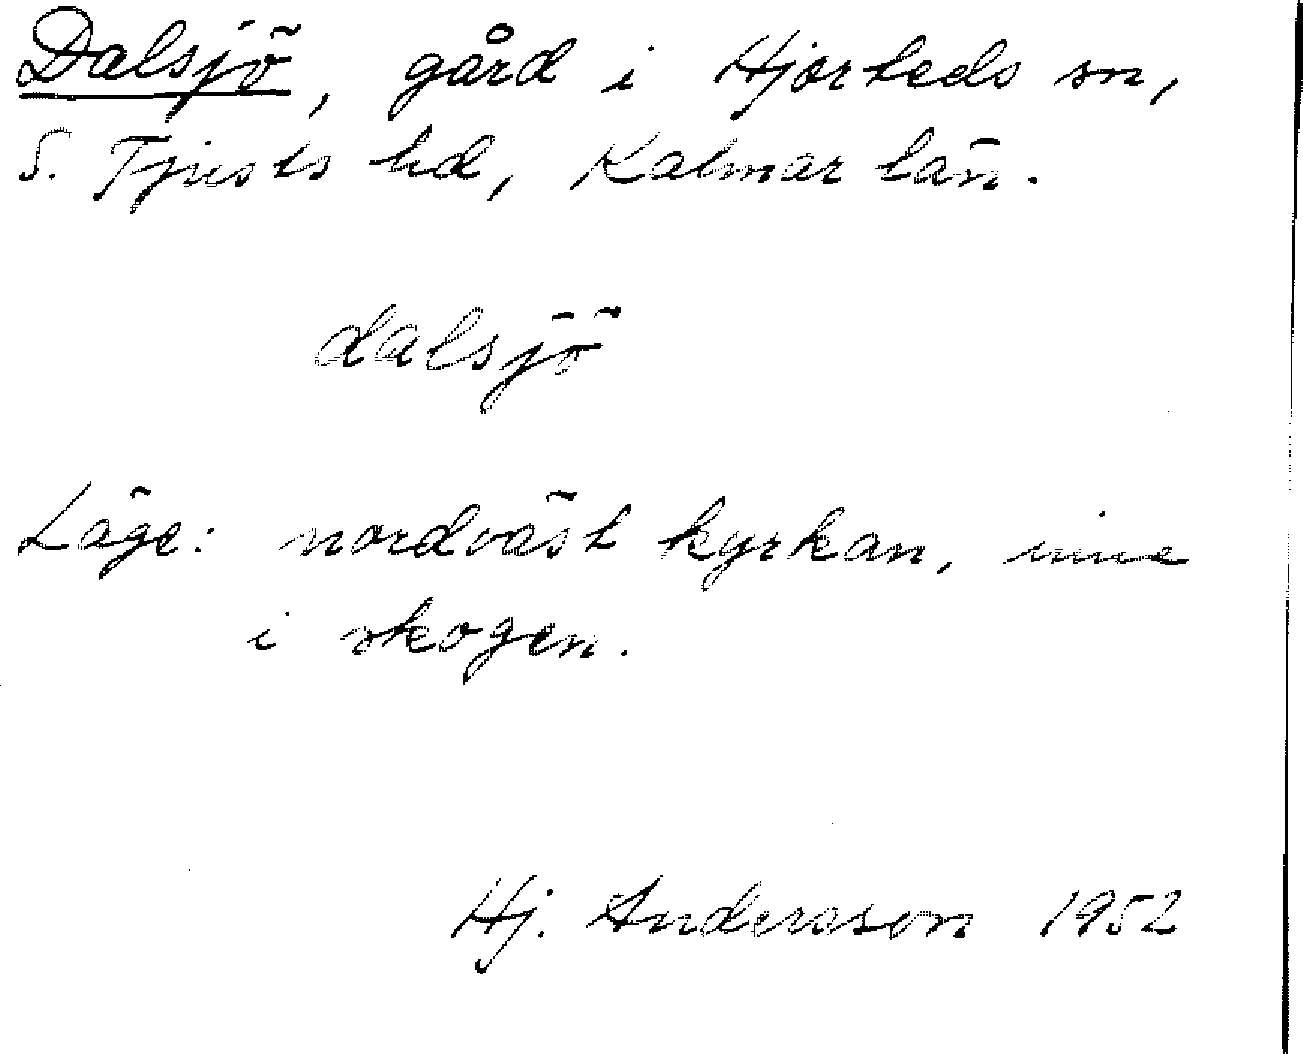 Dalsjö, gård i Hjorteds sn,
S. Tjusts hd, Kalmar län.
dalsjö
Läge: nordväst kyrkan, inne
i skogen.
Hj. Andersson 1952